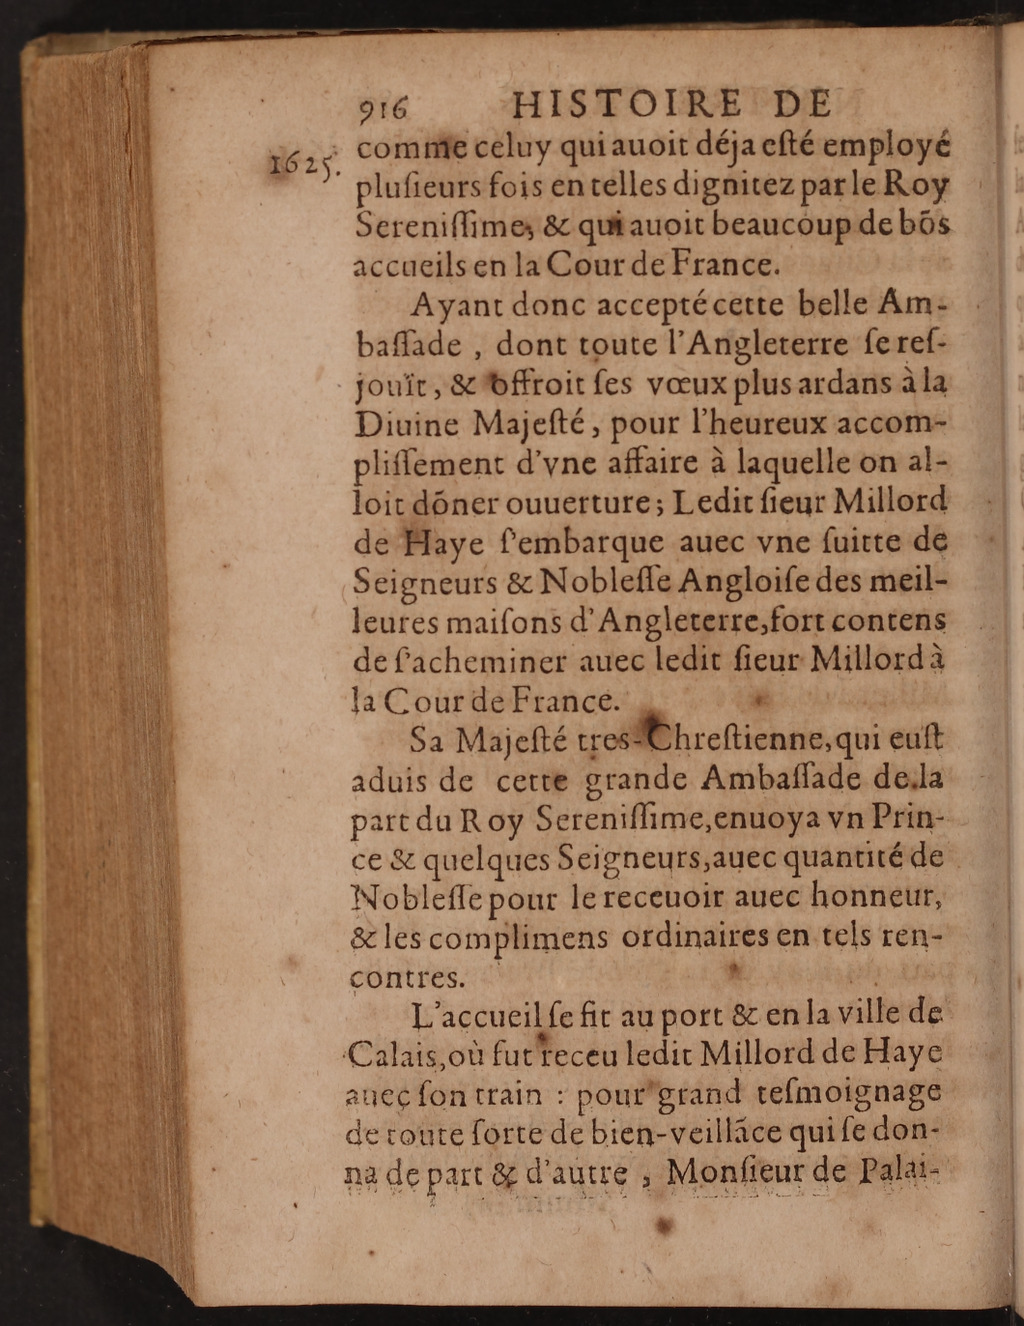 916 HISTOIRE DE
1625. comme celuy qui auoit déja eſté employé
pluſieurs fois en telles dignitez par le Roy
Sereniſſime, & qui auoit beaucoup de bõs
accueils en la Cour de France.
Ayant donc accepté cette belle Am-
baſſade , dont toute l'Angleterre ſe reſ-
jouït, & offroit ſes vœux plus ardans à la
Diuine Majeſté, pour l'heureux accom-
pliſſement d'vne affaire à laquelle on al-
loit dõner ouuerture; Ledit ſieur Millord
de Haye ſ'embarque auec vne ſuitte de
Seigneurs & Nobleſſe Angloiſe des meil-
leures maiſons d'Angleterre, fort contens
de ſ'acheminer auec ledit ſieur Millord à
la Cour de France.
Sa Majeſté tres-Chreſtienne, qui euſt
aduis de cette grande Ambaſſade de la
part du Roy Sereniſſime, enuoya vn Prin-
ce & quelques Seigneurs, auec quantité de
Nobleſſe pour le receuoir auec honneur,
& les complimens ordinaires en tels ren-
contres.
L'accueil ſe fit au port & en la ville de
Calais, où fut receu ledit Millord de Haye
auec ſon train : pour grand teſmoignage
de toute ſorte de bien-veillãce qui ſe don-
na de part & d'autre , Monſieur de Palai-